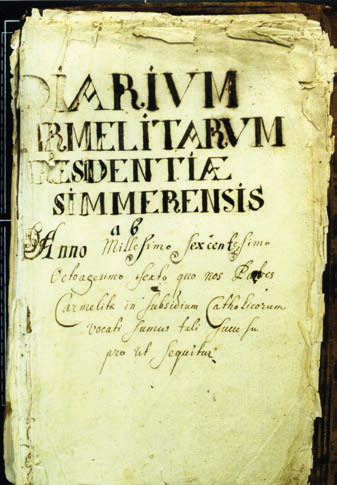 DIARIVM
ARMELITARVM
RESIDENTIÆ
SIMMERENSIS
ab
Anno Millesimo Sexcentesimo
Octoagesimo sexto quo nos Patres
Carmelitæ in subsidium Catholicorum
vocati sumus tali
pro ut sequitur